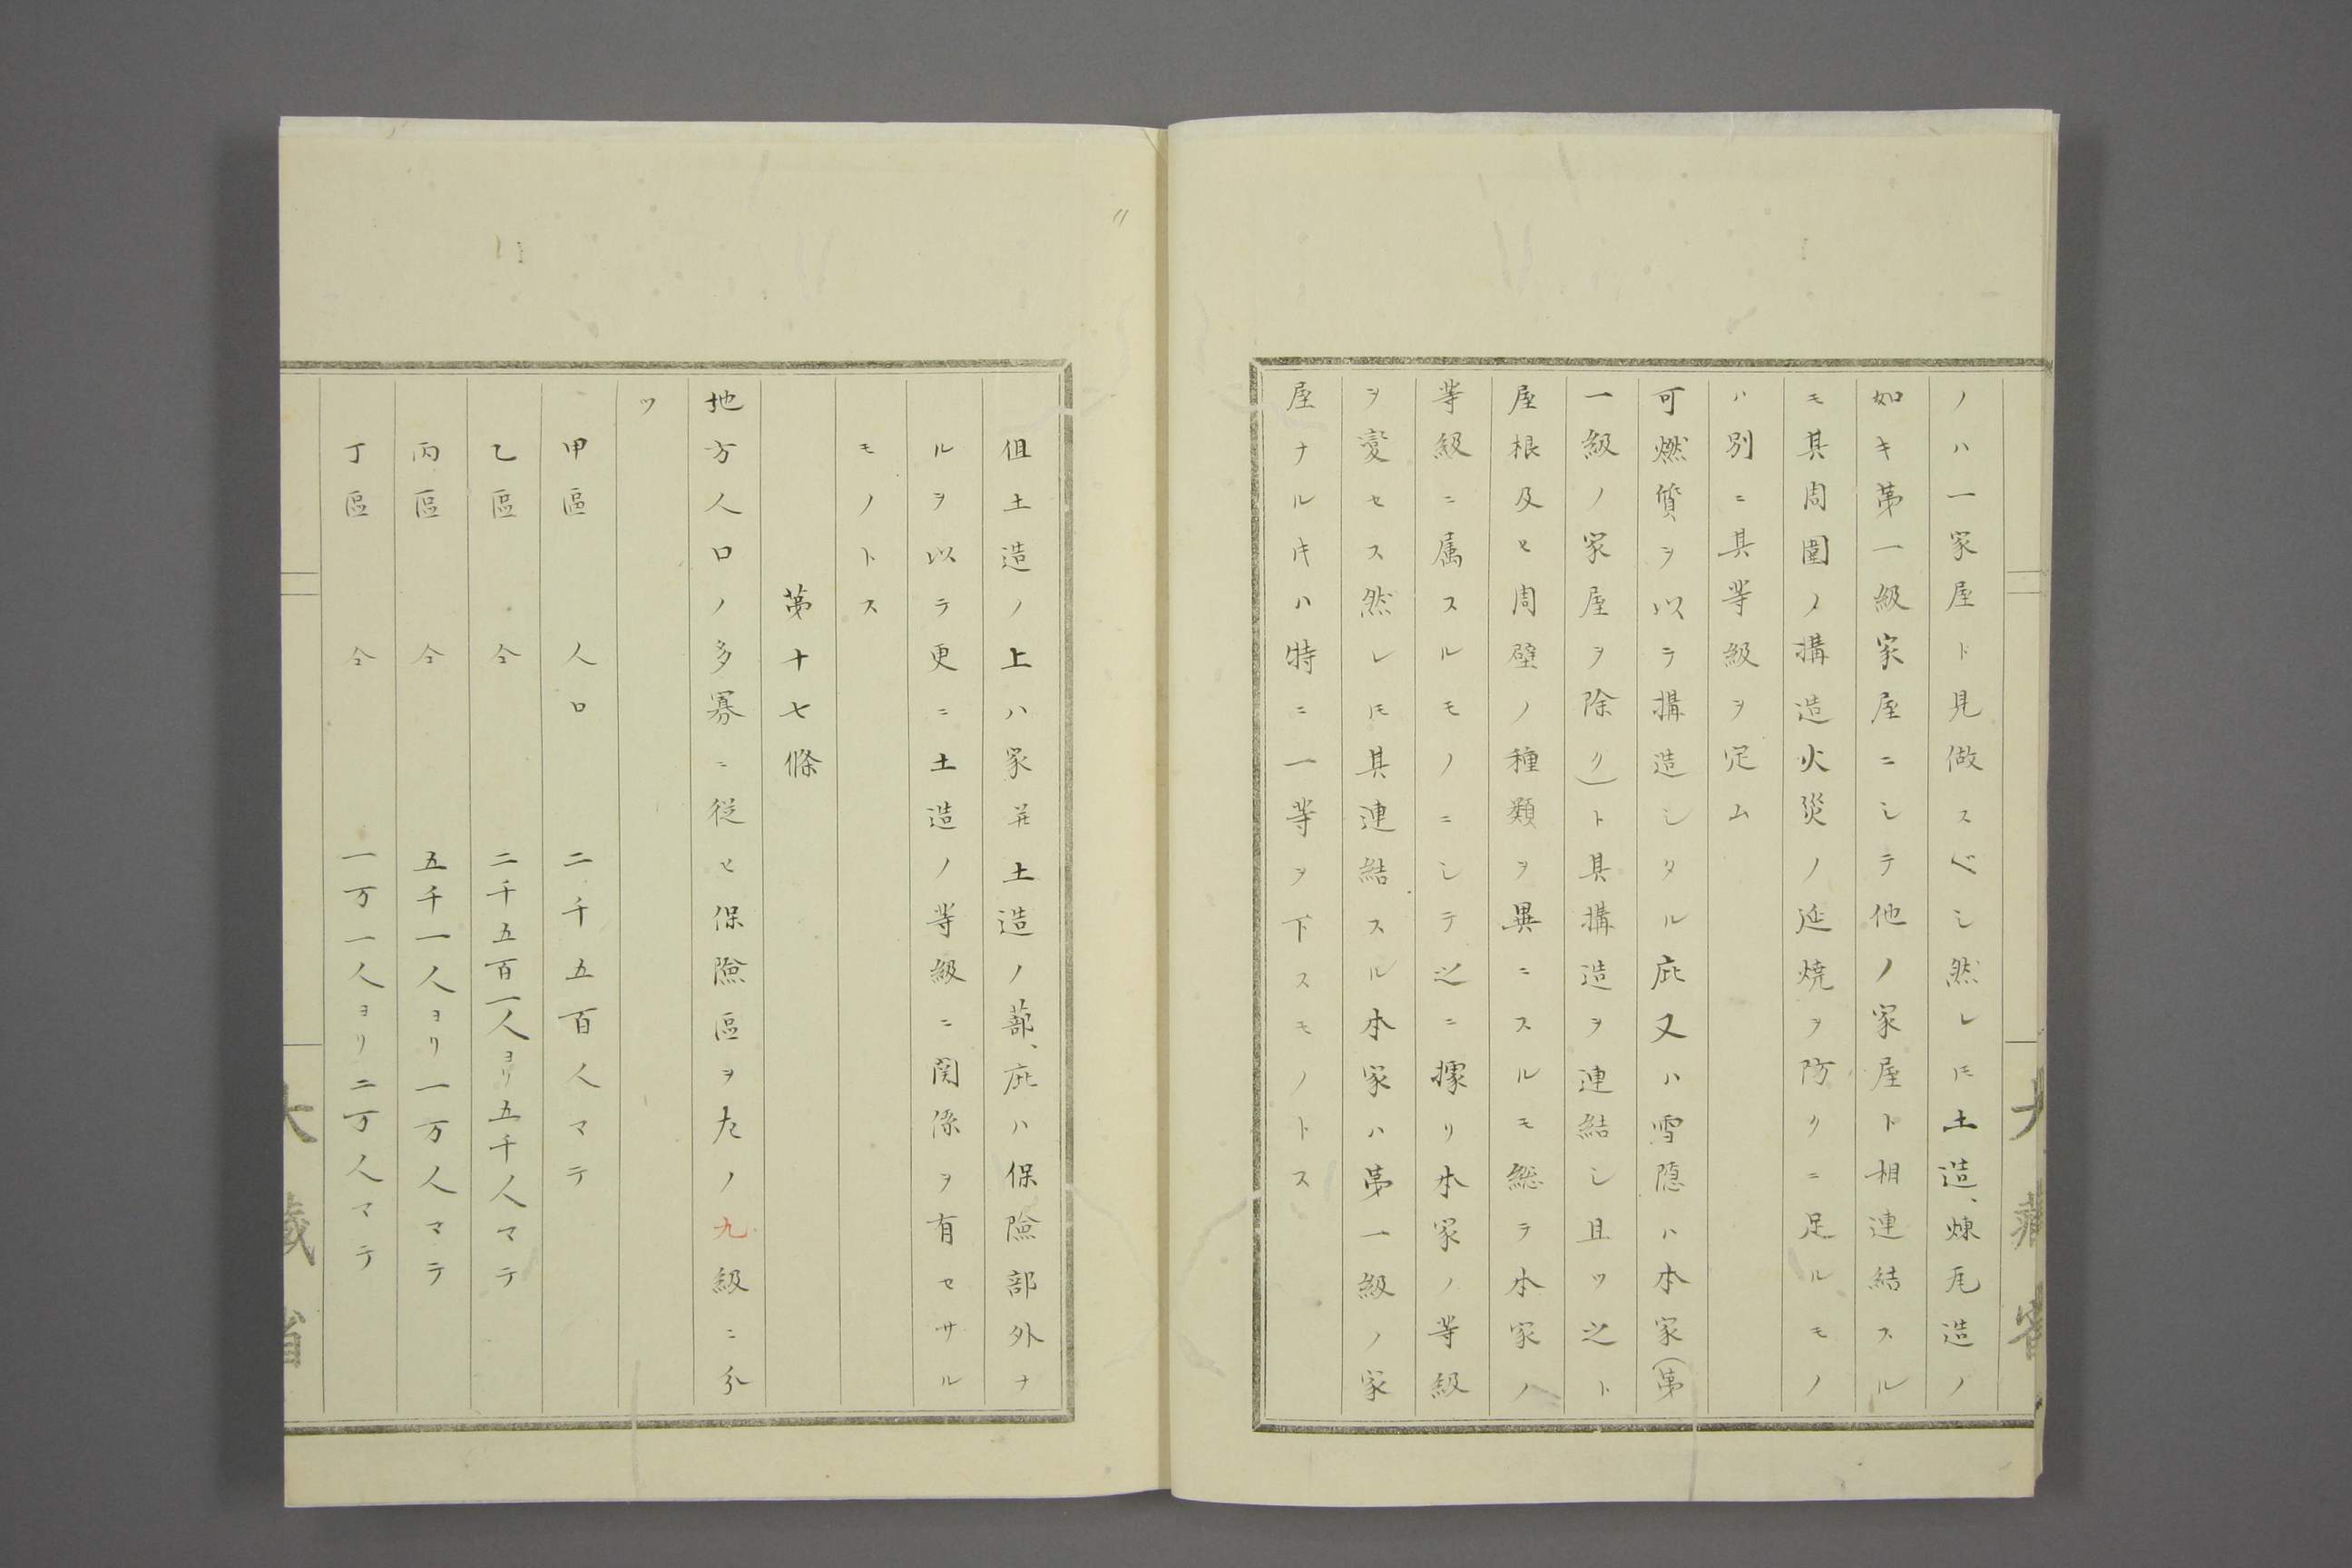 ノハ一家屋ト見做スベシ然レ𪜈土造、煉瓦造ノ
如キ第一級家屋ニシテ他ノ家屋ト相連結スル
モ其周圍ノ搆造火災ノ延燒ヲ防クニ足ルモノ
ハ別ニ其等級ヲ定ム
可燃質ヲ以テ搆造シタル庇又ハ雪隠ハ本家(第
一級ノ家屋ヲ除ク)ト其搆造ヲ連結シ且ツ之ト
屋根及ヒ周壁ノ種類ヲ異ニスルモ総テ本家ノ
等級ニ属スルモノニシテ之ニ據リ本家ノ等級
ヲ変セス然レ𪜈其連結スル本家ハ第一級ノ家
屋ナル𪜀ハ特ニ一等ヲ下スモノトス
大藏省
但土造ノ上ハ家并土造ノ蔀、庇ハ保險部外ナ
ルヲ以テ更ニ土造ノ等級ニ関係ヲ有セサル
モノトス
第十七條
地方人口ノ多寡ニ従ヒ保險區ヲ左ノ九級ニ分
ツ
甲區 人口 二千五百人マテ
乙區 仝 二千五百一人ヨリ五千人マテ
丙區 仝 五千一人ヨリ一万人マテ
丁區 仝 一万一人ヨリ二万人マテ
大藏省